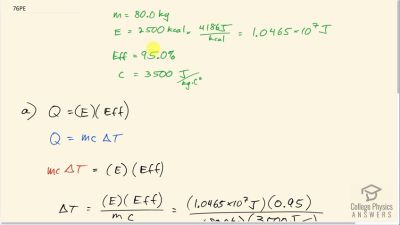 76PE
m = 80.0 kg
E = 2500 kcal × 4186 J / kcal = 1.0465 × 10⁷ J
Eff = 95.0%
C = 3500 J / kg·C°
a) Q = (E)(Eff)
Q = mc ΔT
mc ΔT = (E)(Eff)
ΔT = (E)(Eff) / mc = (1.0465×10⁷ J)(0.95)
College Physics
ANSWERS